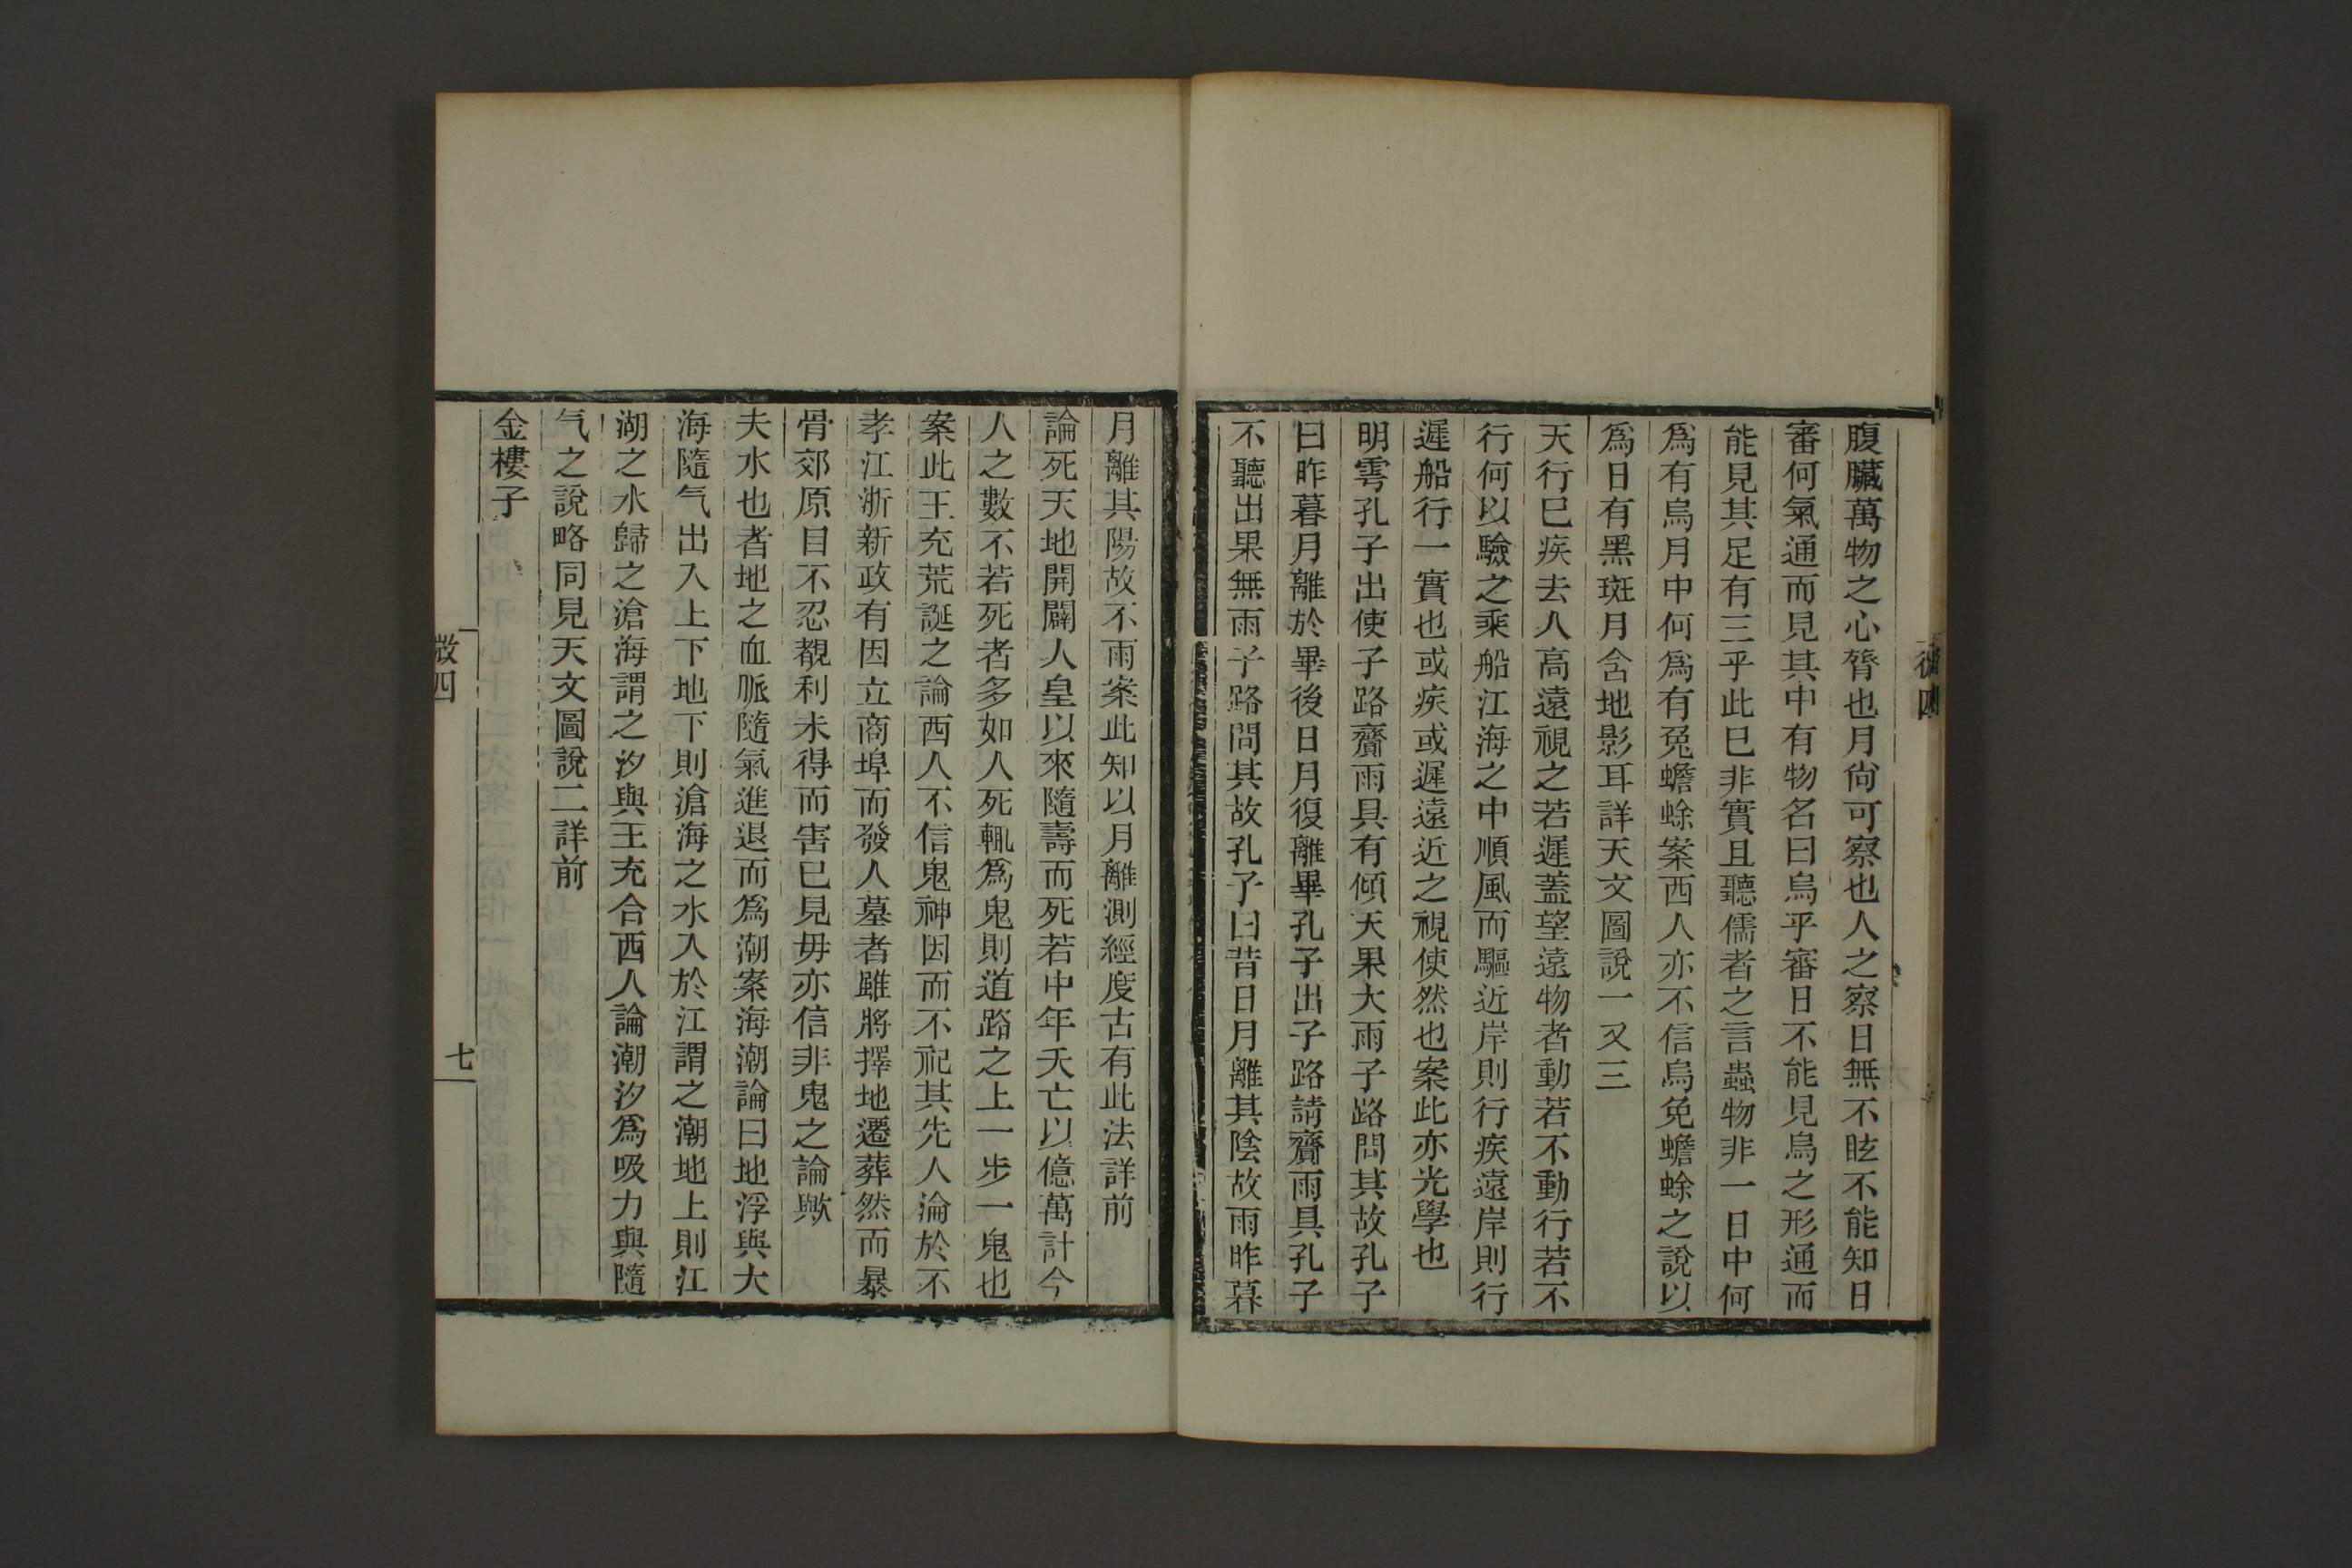 腹臟萬物之心膂也月尙可察也人之察日無不眩不能知日
審何氣通而見其中有物名曰烏乎審日不能見烏之形通而
能見其足有三乎此巳非實且聽儒者之言蟲物非一日中何
爲有烏月中何爲有兔蟾蜍案西人亦不信烏兔蟾蜍之說以
爲日有黑斑月含地影耳詳天文圖說一又三
天行巳疾去人高遠視之若遲蓋望遠物者動若不動行若不
行何以驗之乘船江海之中順風而驅近岸則行疾遠岸則行
遲船行一實也或疾或遲遠近之視使然也案此亦光學也
明雩孔子出使子路齎雨具有傾天果大雨子路問其故孔子
曰昨暮月離於畢後日月復離畢孔子出子路請齎雨具孔子
不聽出果無雨子路問其故孔子曰昔日月離其陰故雨昨暮
月離其陽故不雨案此知以月離測經度古有此法詳前
論死天地開闢人皇以來隨壽而死若中年夭亡以億萬計今
人之數不若死者多如人死輒爲鬼則道路之上一步一鬼也
案此王充荒誕之論西人不信鬼神因而不祀其先人淪於不
孝江浙新政有因立商埠而發人墓者雖將擇地遷葬然而暴
骨郊原目不忍覩利未得而害巳見毋亦信非鬼之論歟
夫水也者地之血脈隨氣進退而爲潮案海潮論曰地浮與大
海隨气出入上下地下則滄海之水入於江謂之潮地上則江
湖之水歸之滄海謂之汐與王充合西人論潮汐爲吸力與隨
气之說略同見天文圖說二詳前
金樓子
四
七